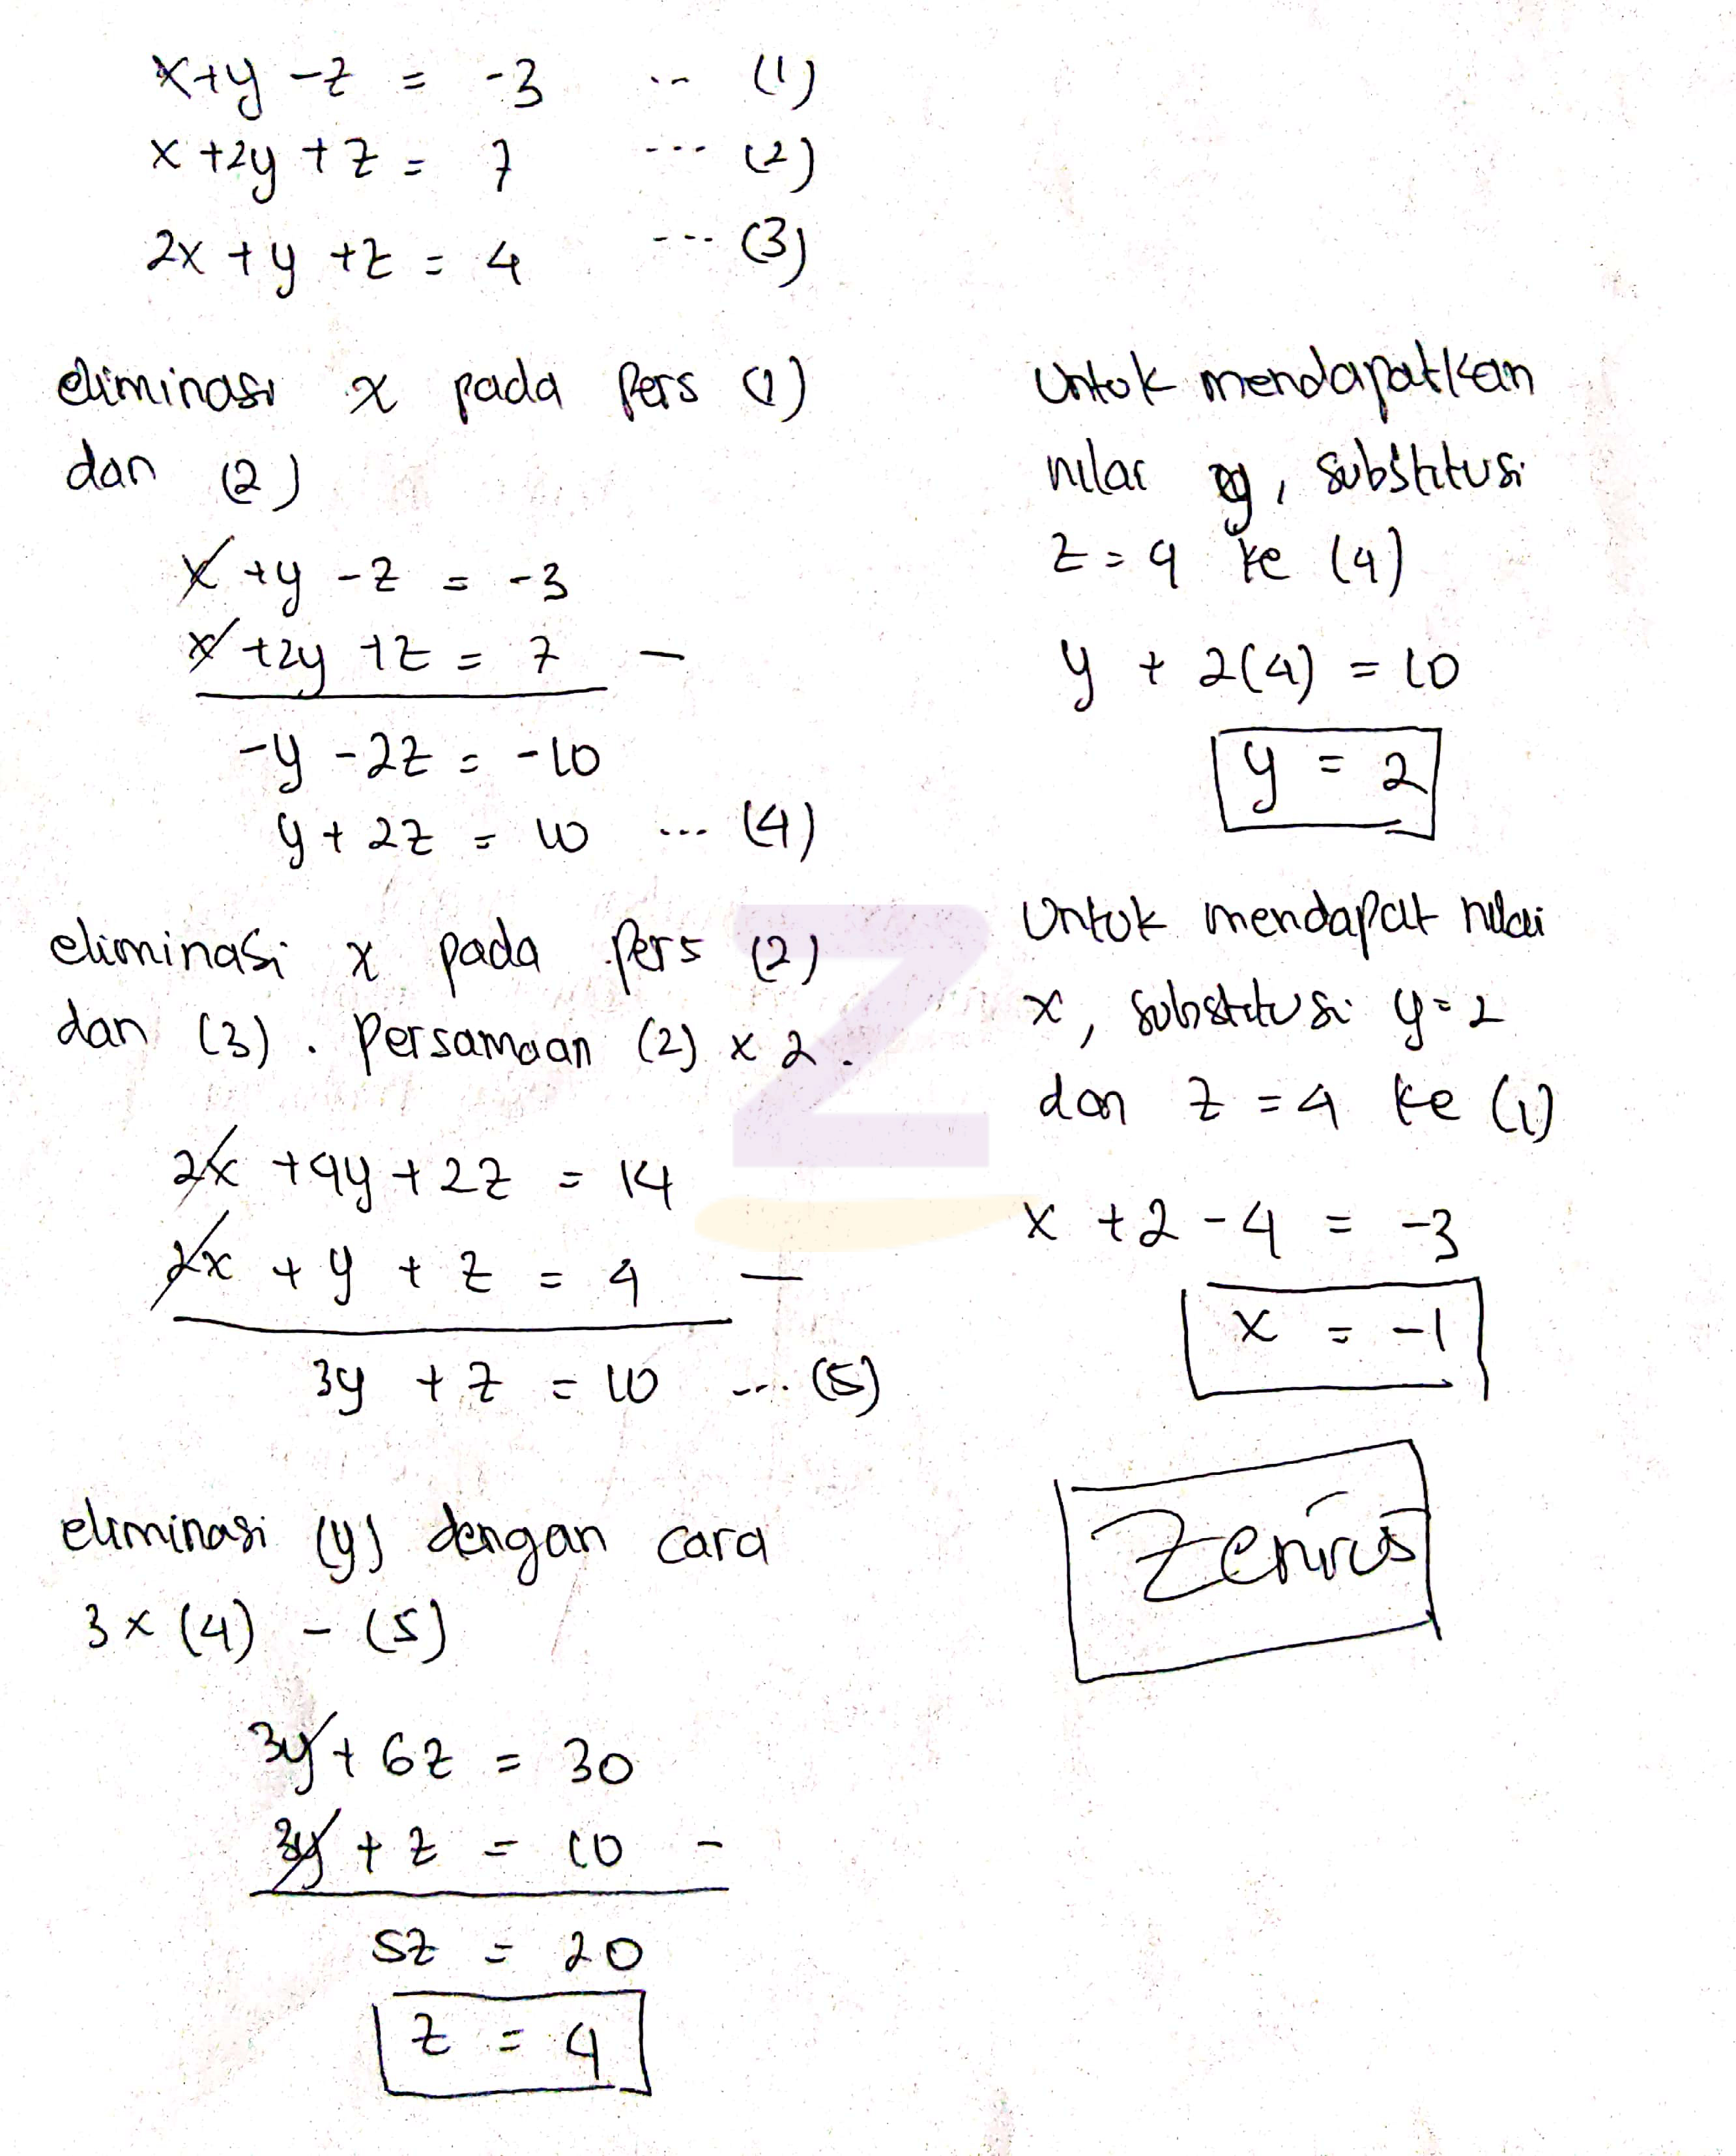 x+y-z = -3 ... (1)
x+2y+z = 7 ... (2)
2x+y+z = 4 ... (3)
eliminasi x pada pers (1)
dan (2)
x+y-z = -3
x+2y+z = 7 -
-y-2z = -10
y+2z = 10 ... (4)
eliminasi x pada pers (2)
dan (3). Persamaan (2) x 2.
2x+4y+2z = 14
2x+y+z = 4 -
3y+z = 10 ... (5)
eliminasi (y) dengan cara
3x(4) - (5)
3y+6z = 30
3y+z = 10 -
5z = 20
z = 4
Untuk mendapatkan
nilai y, substitusi
z=4 ke (4)
y + 2(4) = 10
y = 2
Untuk mendapat nilai
x, substitusi y=2
dan z=4 ke (1)
x+2-4 = -3
x = -1
Zenius
Z